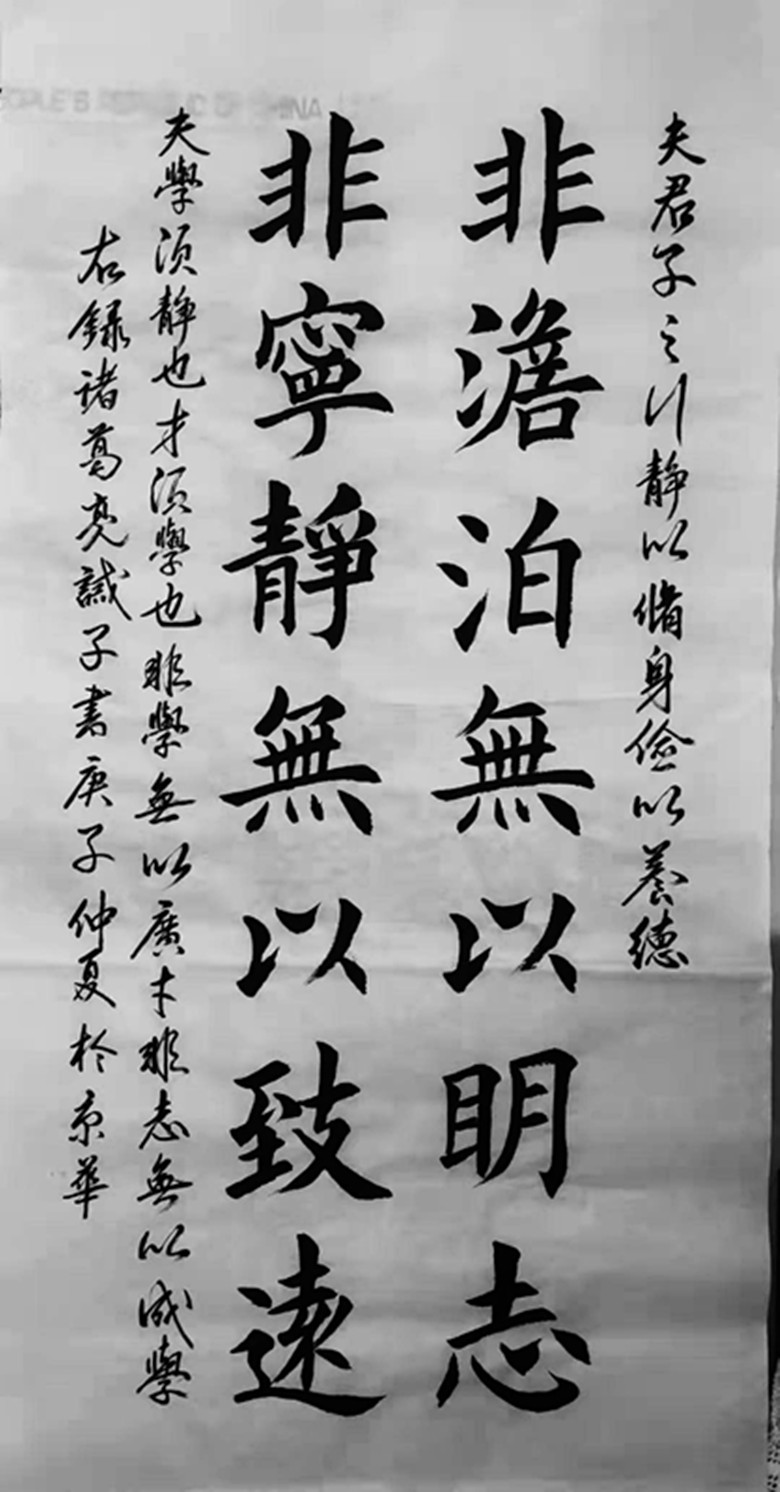 夫君子之行静以脩身儉以養德
非澹泊無以明志
非寧靜無以致遠
夫學須静也才須學也非學無以廣才非志無以成學
右録諸葛亮誡子書庚子仲夏於京華